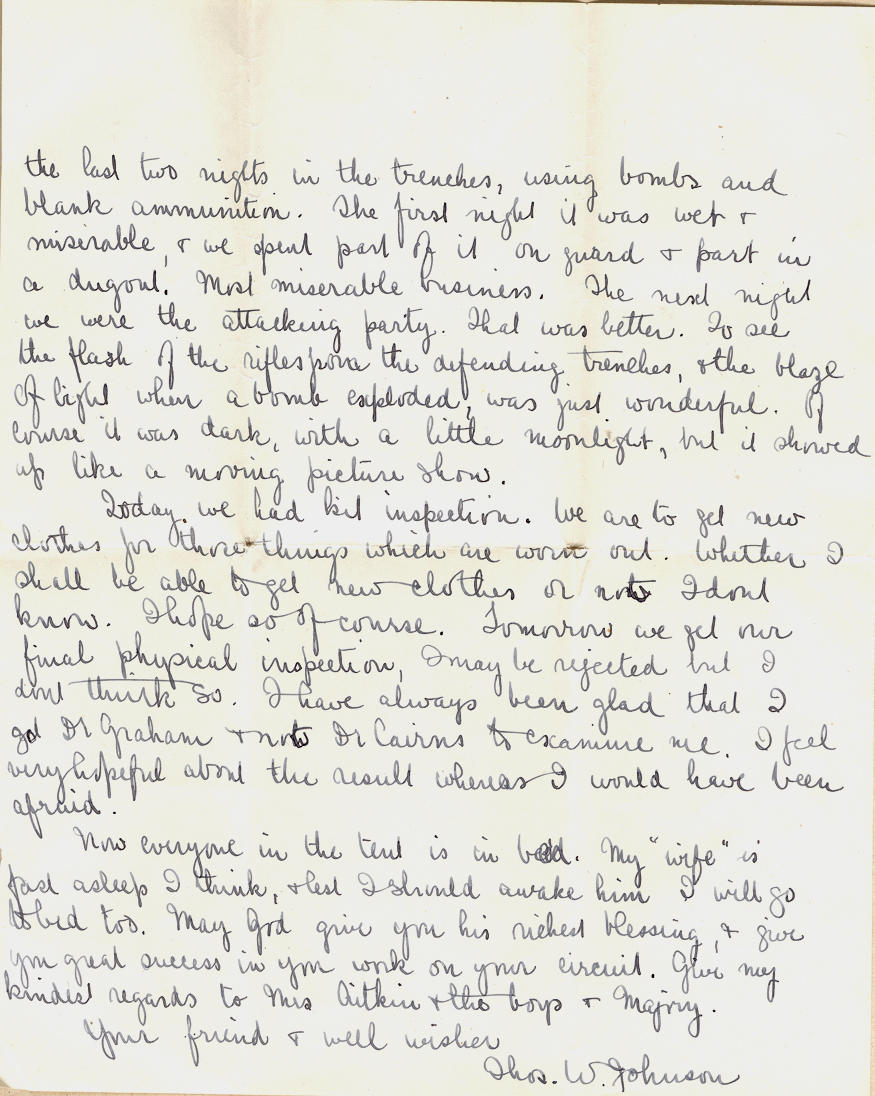 the last two nights in the trenches, using bombs and
blank ammunition. The first night it was wet &
miserable, & we spent part of it on guard & part in
a dugout. Most miserable business. The next night
we were the attacking party. That was better. To see
the flash of the rifles from the defending trenches, & the blaze
of light when a bomb exploded, was just wonderful. Of
course it was dark, with a little moonlight, but it showed
up like a moving picture show.
Today we had kit inspection. We are to get new
clothes for those things which are worn out. Whether I
shall be able to get new clothes or not I dont
know. I hope so of course. Tomorrow we get our
final physical inspection, I may be rejected but I
dont think so. I have always been glad that I
got Dr Graham & not Dr Cairns to examine me. I feel
very hopeful about the result whereas I would have been
afraid.
Now everyone in the tent is in bed. My "wife" is
fast asleep I think, & lest I should awake him I will go
to bed too. May God give you his richest blessing, & give
you great success in you work on your circuit. Give my
kindest regards to Mrs Aitkin & the boys & Majory.
Your friend & well wisher
Thos. W. Johnson